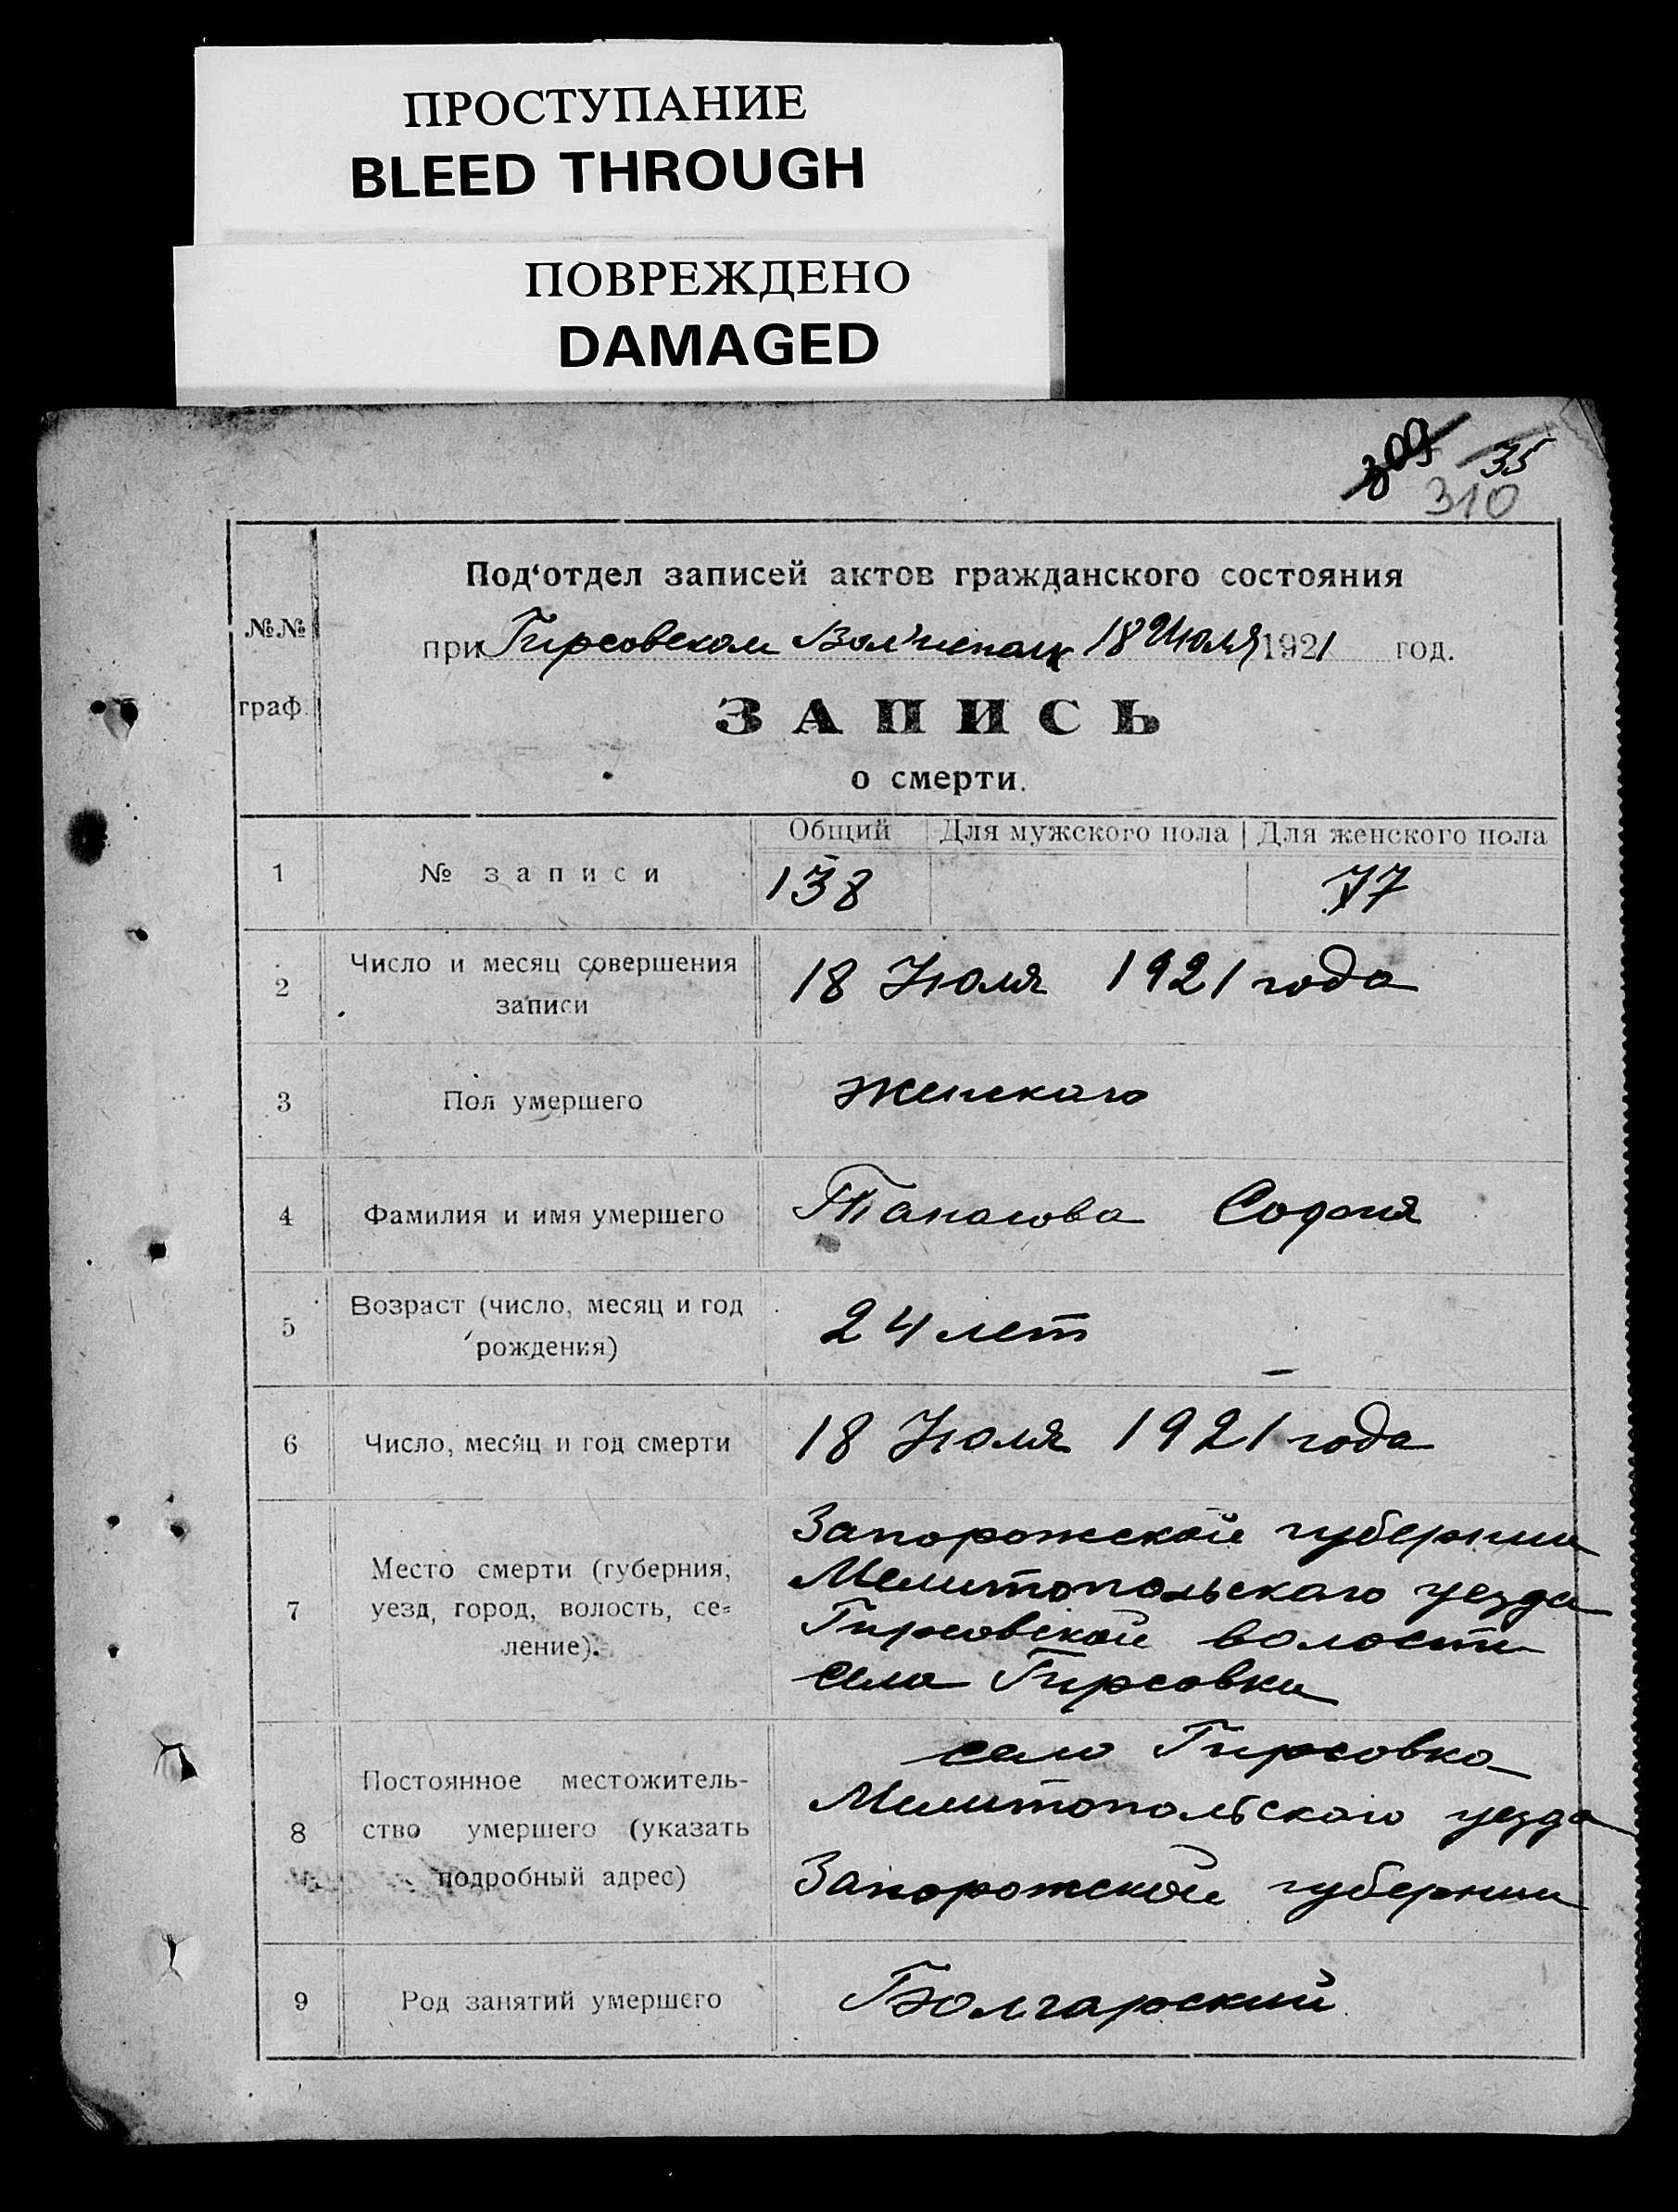 ПРОСТУПАНИЕ
BLEED THROUGH
ПОВРЕЖДЕНО
DAMAGED
309 35
310
Под‘отдел записей актов гражданского состояния
№№
при Гирсовском Вол'исполк 18 Июля 1921 год.
граф.
ЗАПИСЬ
о смерти.
Общий Для мужского пола Для женского пола
1 № записи 138 77
2 Число и месяц совершения
записи
18 Июля 1921 года
3 Пол умершего женскаго
4 Фамилия и имя умершего Танасова София
5 Возраст (число, месяц и год
рождения)
24 лет
6 Число, месяц и год смерти 18 Июля 1921 года
7 Место смерти (губерния,
уезд, город, волость, се=
ление).
Запорожской губернии
Мелитопольскаго уезда
Гирсовской волости
села Гирсовки
8 Постоянное местожитель-
ство умершего (указать
подробный адрес)
село Гирсовка
Мелитопольскаго уезда
Запорожской губернии
9 Род занятий умершего Болгарский